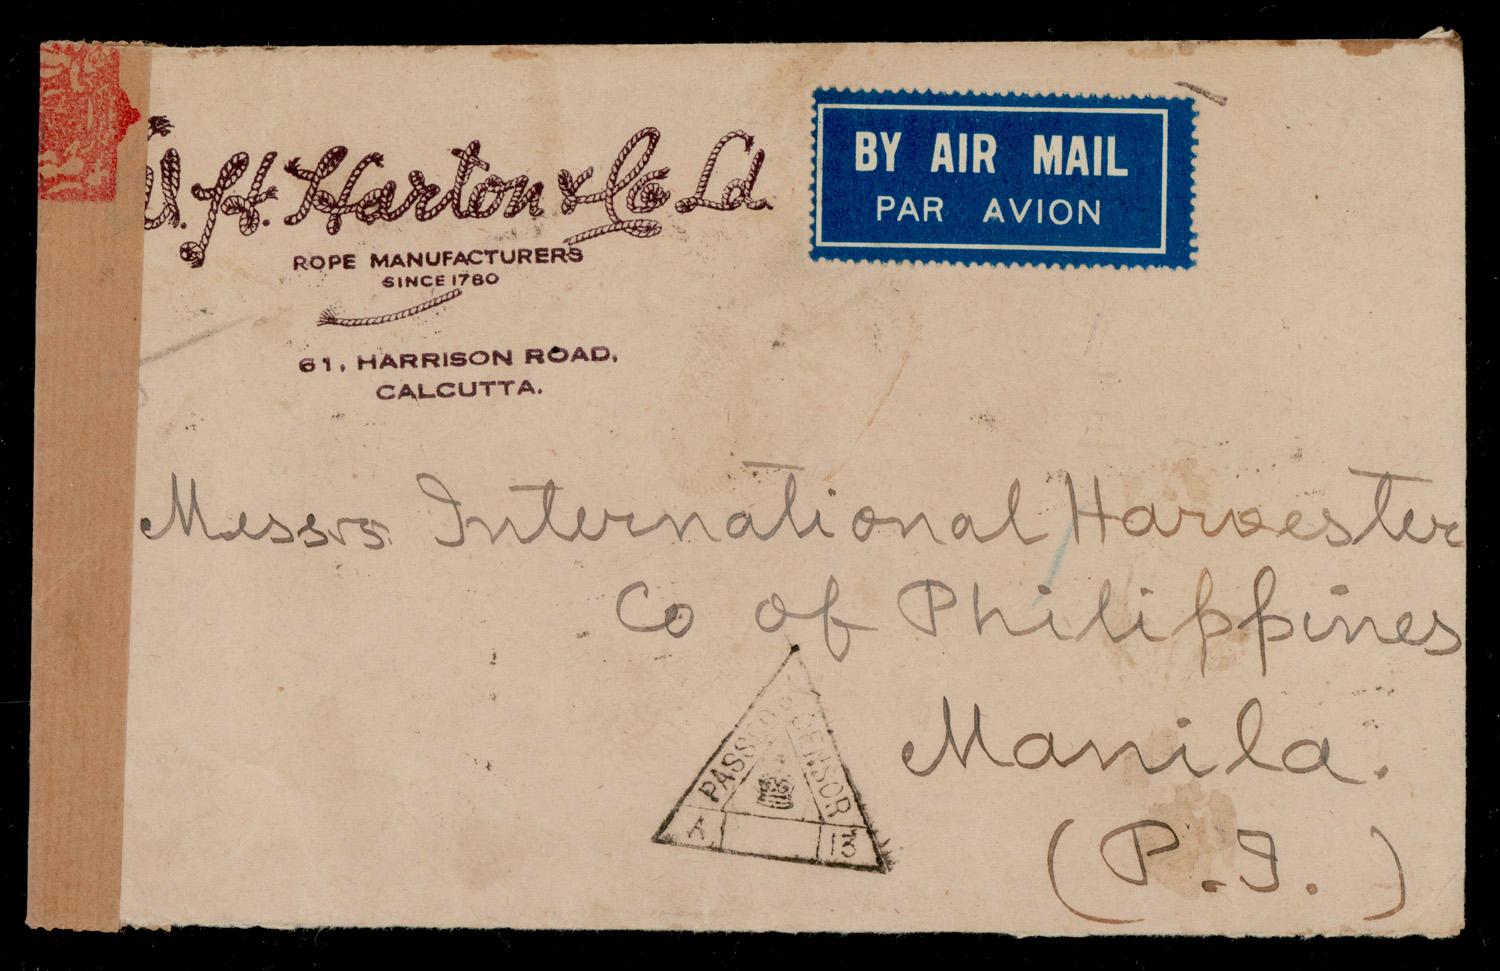 W. H. Harton & Co Ld
ROPE MANUFACTURERS
SINCE 1780
61, HARRISON ROAD,
CALCUTTA.
BY AIR MAIL
PAR AVION
Messrs International Harvester
Co of Philippines
Manila.
(P.I.)
PASSED BY CENSOR
A 13